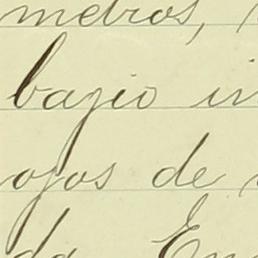 metros,
bajio in
ojos de
da En